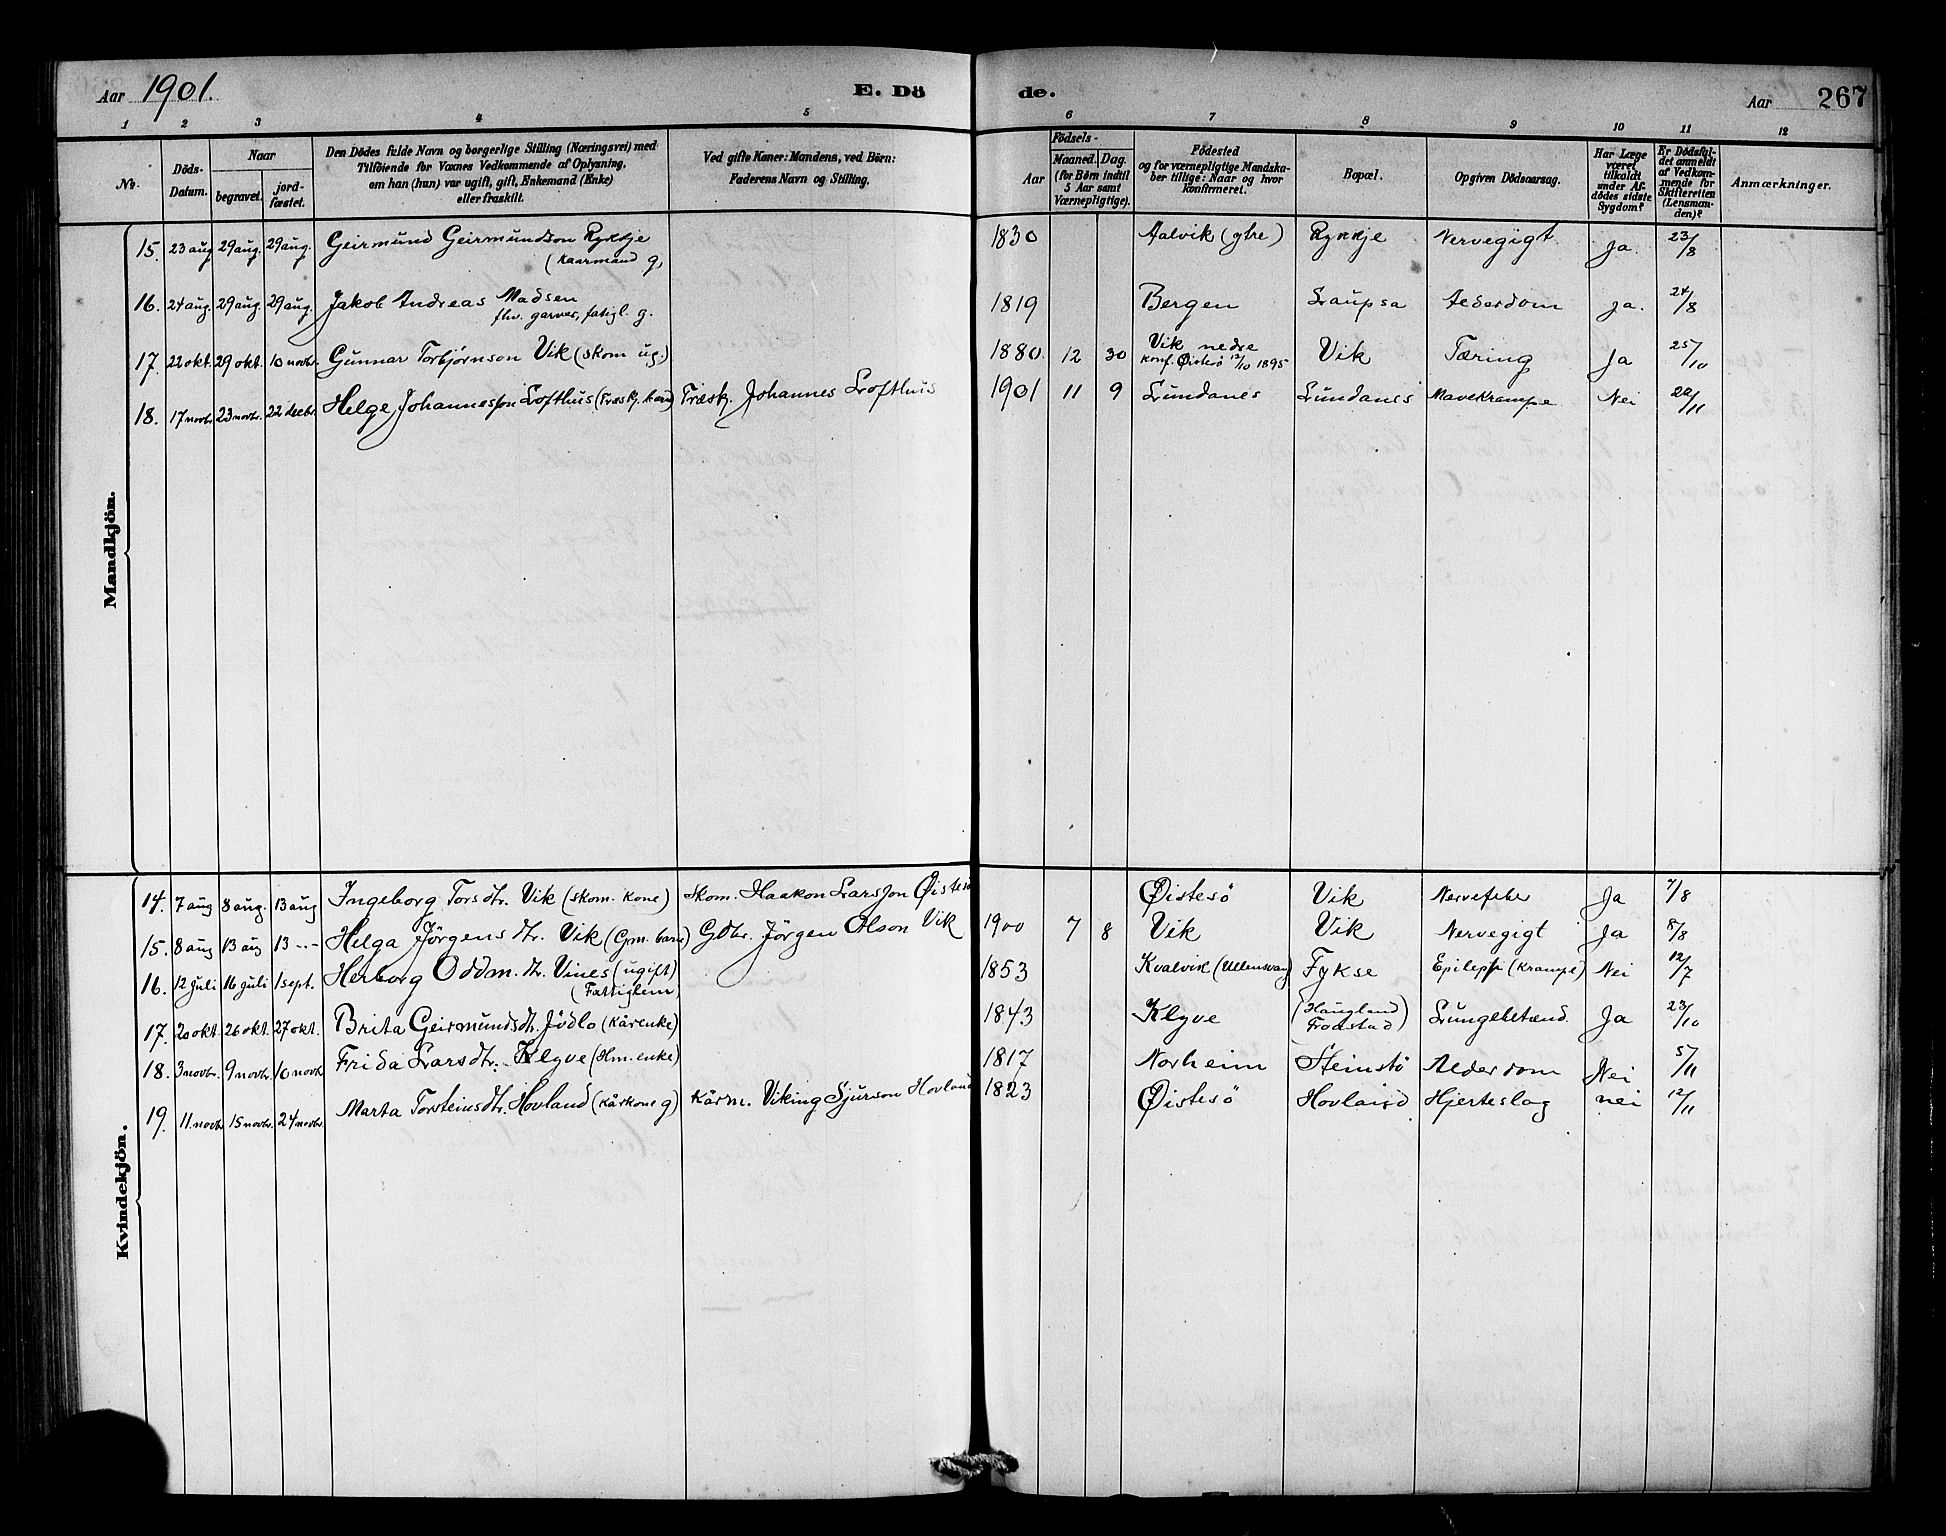 Aar 1901. E. Dö de. Aar 267
1 2 3 4 5 6 7 8 9 10 11 12
Nr. Döds-Datum. Naar begravet. jordfæstet. Den Dödes fulde Navn og borgerlige Stilling (Næringsvei) med Tilföiende for Voxnes Vedkommende af Oplysning, om han (hun) var ugift, gift, Enkemand (Enke) eller fraskilt. Ved gifte Koner: Mandens, ved Börn: Faderens Navn og Stilling. Födsels- Aar Maaned. Dag. (for Börn indtil 5 Aar samt Værnepligtige). Födested og for værnepligtige Mandskaber tillige: Naar og hvor Konfirmeret. Bopæl. Opgiven Dödsaarsag. Har Læge været tilkaldt under Afdödes sidste Sygdom? Er Dödsfaldet anmeldt af Vedkommende for Skifteretten (Lensmanden)? Anmærkninger.
Mandkjön.
15. 23 aug 29 aug. 29 aug. Geirmund Geirmundson Rykkje (kaarmand g) 1830 Aalvik (ytre) Rykkje Nervegigt Ja. 23/8
16. 24 aug. 29 aug. 29 aug. Jakob Andreas Madsen fhv. garver, fatigl. g. 1819 Bergen Laupsa Aederdom ja. 24/8
17. 22 okt. 29 okt. 10 novbr. Gunnar Torbjørnson Vik (skom ug.) 1880 12 30 Vik nedre konf. Øistesø 13/10 1895 Vik Tæring Ja 25/10
18. 17 novbr 23 novbr. 22 decbr. Helge Johannesson Lofthus (Træskj. barn) Træskj. Johannes Lofthus 1901 11 9 Lundanes Lundanes Mavekrampe Nei 22/11
Kvindekjön.
14. 7 aug 8 aug. 13 aug Ingeborg Torsdtr. Vik (skom. kone) Skom. Haakon Larsson Øistesö Øistesö Vik Nervefeber Ja 7/8
15. 8 aug 13 aug 13 -.- Helga Jörgensdtr. Vik (Gm. barn) Gdbr. Jörgen Olson Vik 1900 7 8 Vik Vik Nervegigt Ja 8/8
16. 12 juli 16 juli 1 sept. Herborg Oddm.dtr. Vines (ugift) (Fattiglem) 1853 Kvalvik (Ullensvang) Fykse Epilepsi (Krampe) Nei 12/7
17. 20 okt 26 okt. 27 okt. Brita Geirmundsdtr. Jödlo (kårenke) 1843 Klyve (Haugland) Frodstad Lungebetænd. Ja 23/10
18. 3 novbr. 9 novbr. 10 novbr Frida Larsdtr. Klyve (Hm. enke) 1817 Norheim Steinstö Alderdom Nei 5/11
19. 11. novbr 15 novbr. 24 novbr. Marta Torsteinsdtr. Hovland (kårkone g) Kårm. Viking Sjurson Hovland 1823 Øistesö Hovland Hjerteslag nei 12/11